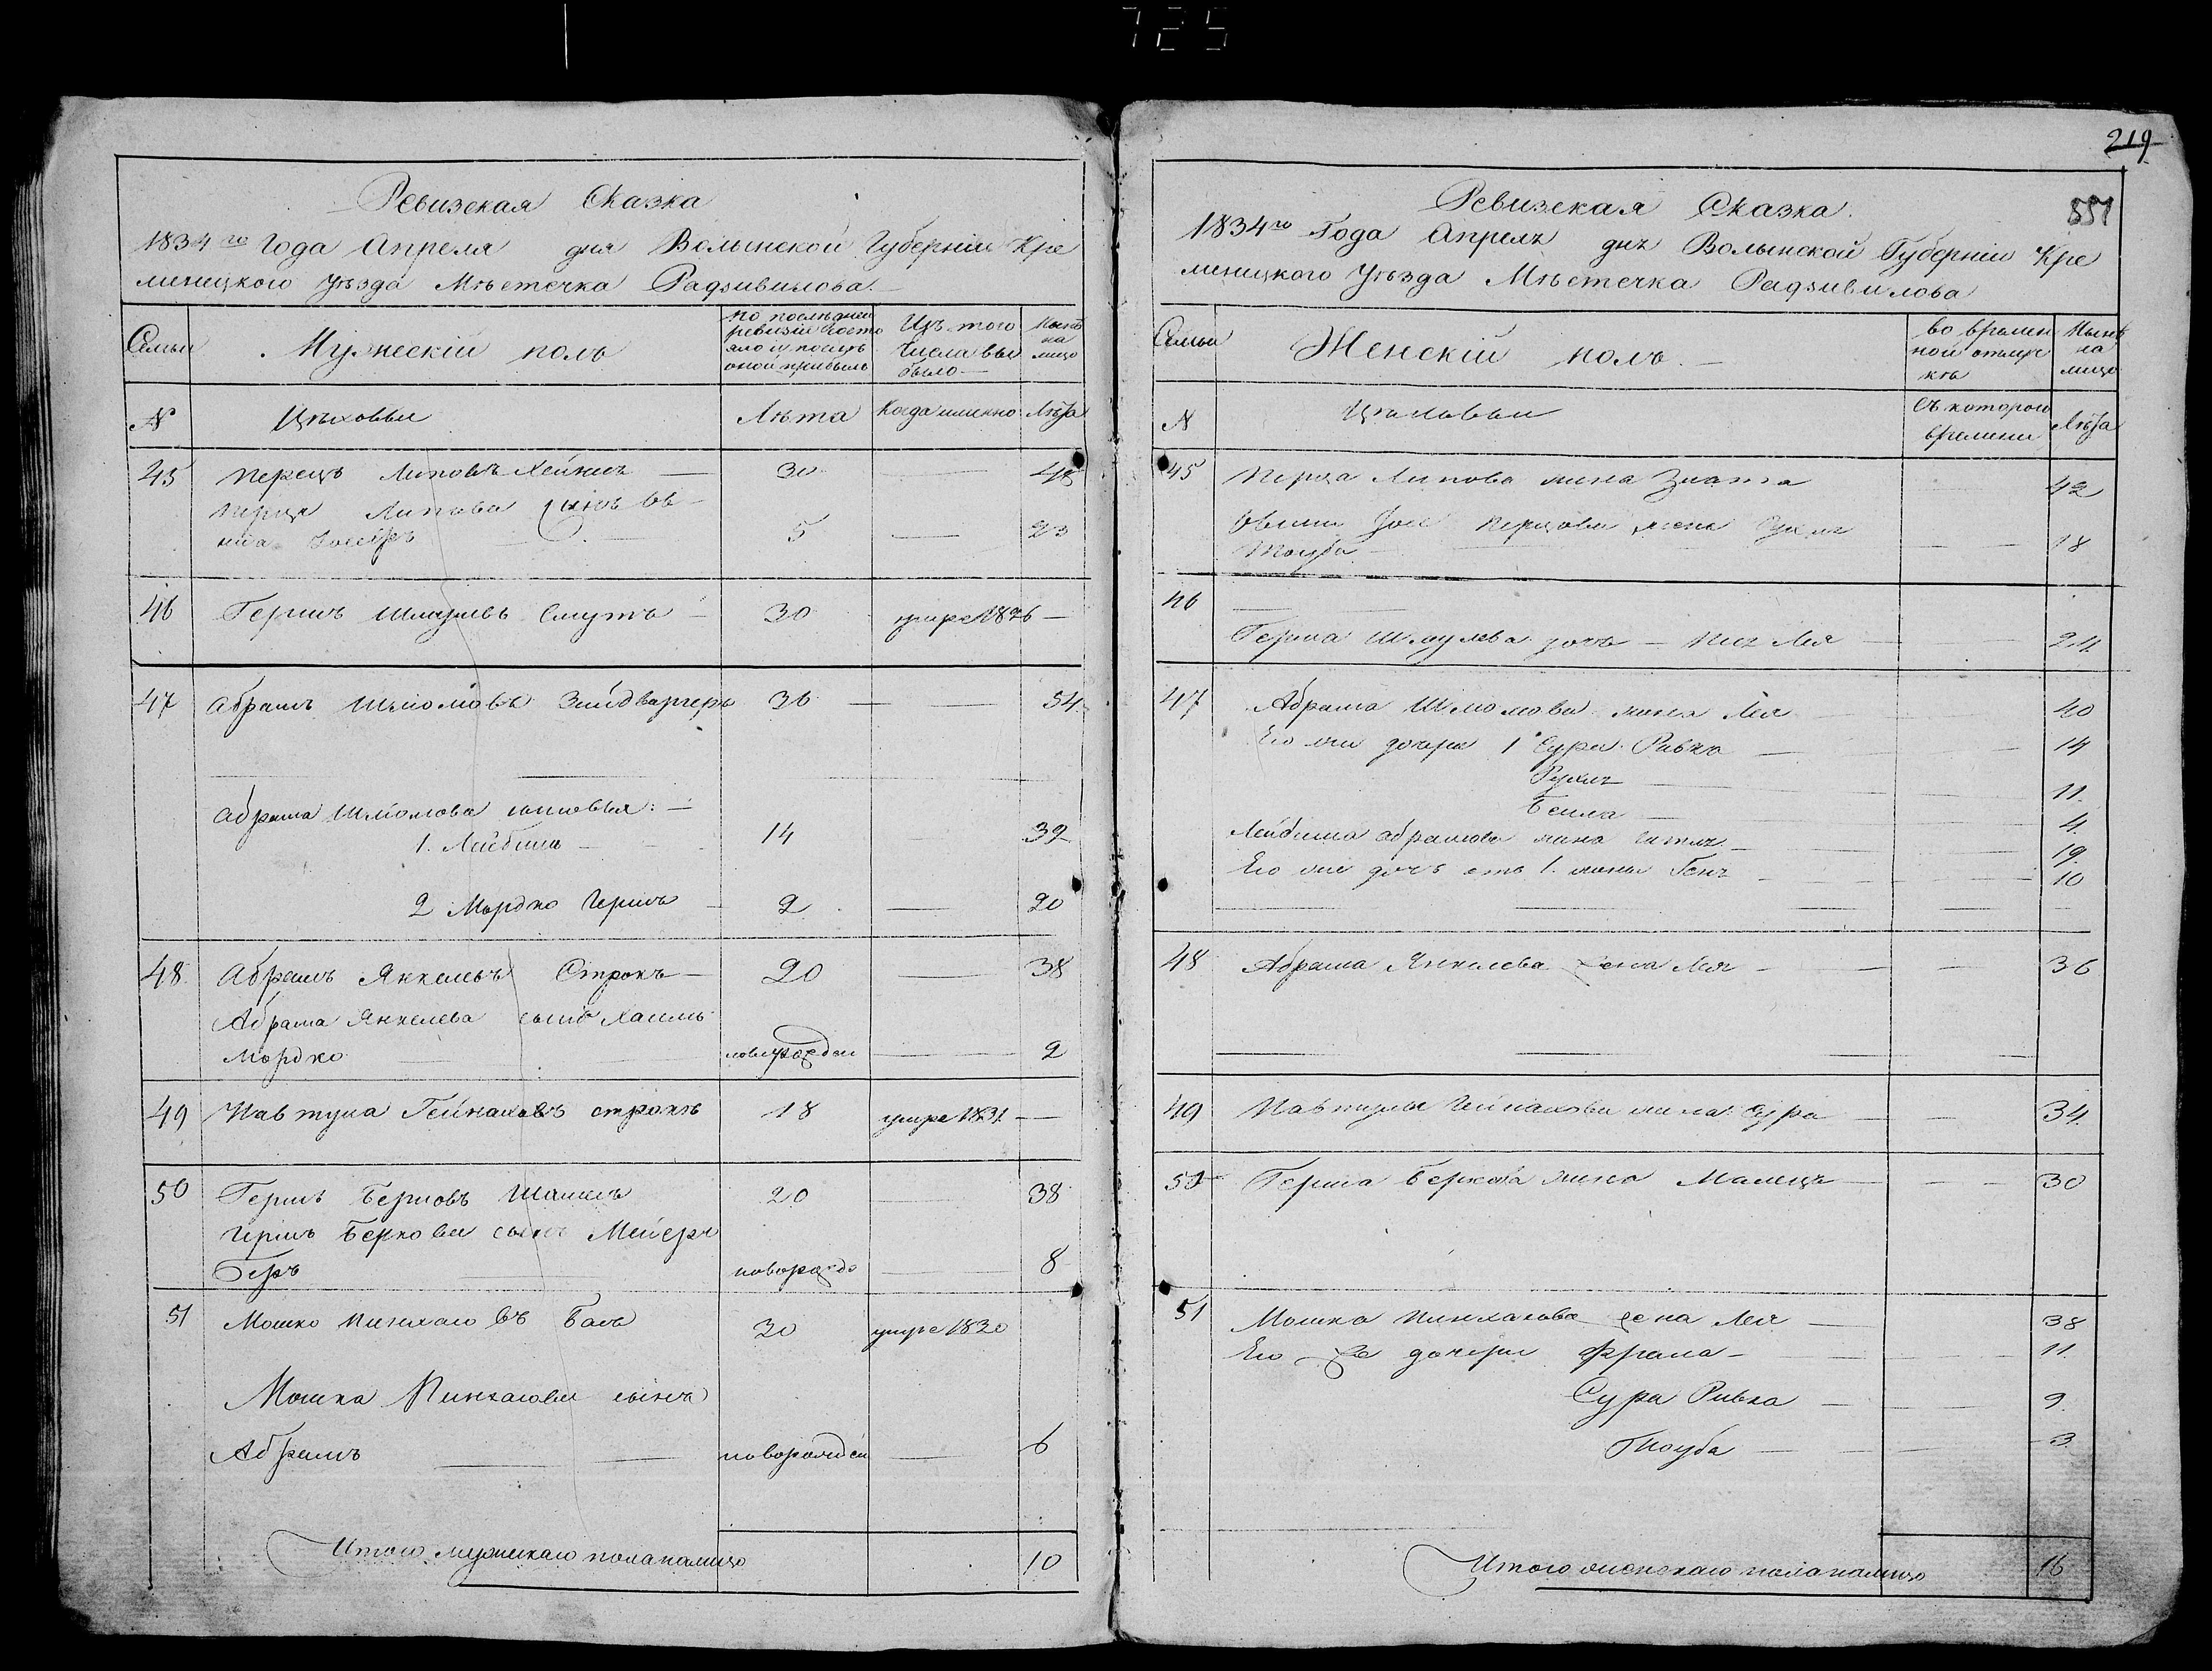 725
219
551
Ревизская Сказка
1834го Года Апреля дня Волынской Губерніи Кре
менецкого Уѣзда Мѣстечка Радзивилова.
Семьи
Мужескій полъ
по послѣдней
ревизіи состо
яло и послѣ
оной прибыло
Изъ того
числа вы
было
Нынѣ
на
лицо
№
Цеховыи
Лѣта
Когда именно
Лѣта
45 Перецъ Липовъ 30
Перца Липова сынъ
5 23
46 Гершъ Шмулевъ 30 умре 1826
47 Абрамъ Шмомовъ Зийдваргеръ 36 54
Абрама Шмомова сыновья:
1. Лейбишъ 14 32
2 Мордко Гершъ 2 20
48 Абрамъ Янкелевъ Строкъ 20 38
Абрама Янкелева сынъ Хаимъ
Мордко новорожден 2
49 Навтула Гейнаховъ строкъ 18 умре 1831
50 Гершъ Берковъ 20 38
Гершъ Беркова сынъ Мейеръ
Беръ новорожде 8
51 Мошко Пинхасовъ 30 умре 1830
Мошка Пинхасова сынъ
Абрамъ новорожден 6
Итого мужескаго пола налицо 10
Ревизская Сказка.
1834го Года Апреля дня Волынской Губерніи Кре
менецкого Уѣзда Мѣстечка Радзивилова
Семьи
Женскій полъ.
во времен
ной отлуч
кѣ
Нынѣ
на
лицо
N
Съ которого
времени
Лѣта
45 Перца Липова жена Злата 42
Перцова жена
Тауба 18
46
Герша Шмулева дочь Лея 24
47 Абрама Шмомова жена Лея 40
Его же дочери 1 Сура Ривка 14
Рухля 11.
Бейла 4.
Лейбиша Абрамова жена 19.
Его же дочь 1. 10
48 Абрама Янкелева жена Лея 36
49 Навтулы Гейнахова жена Сура 34.
50 Герша Беркова жена 30
51 Мошка Пинхасова жена Лея 38
Его же дочери Фрима 11.
Сура Ривка 9.
Тауба 3.
Итого женскаго пола налицо 16